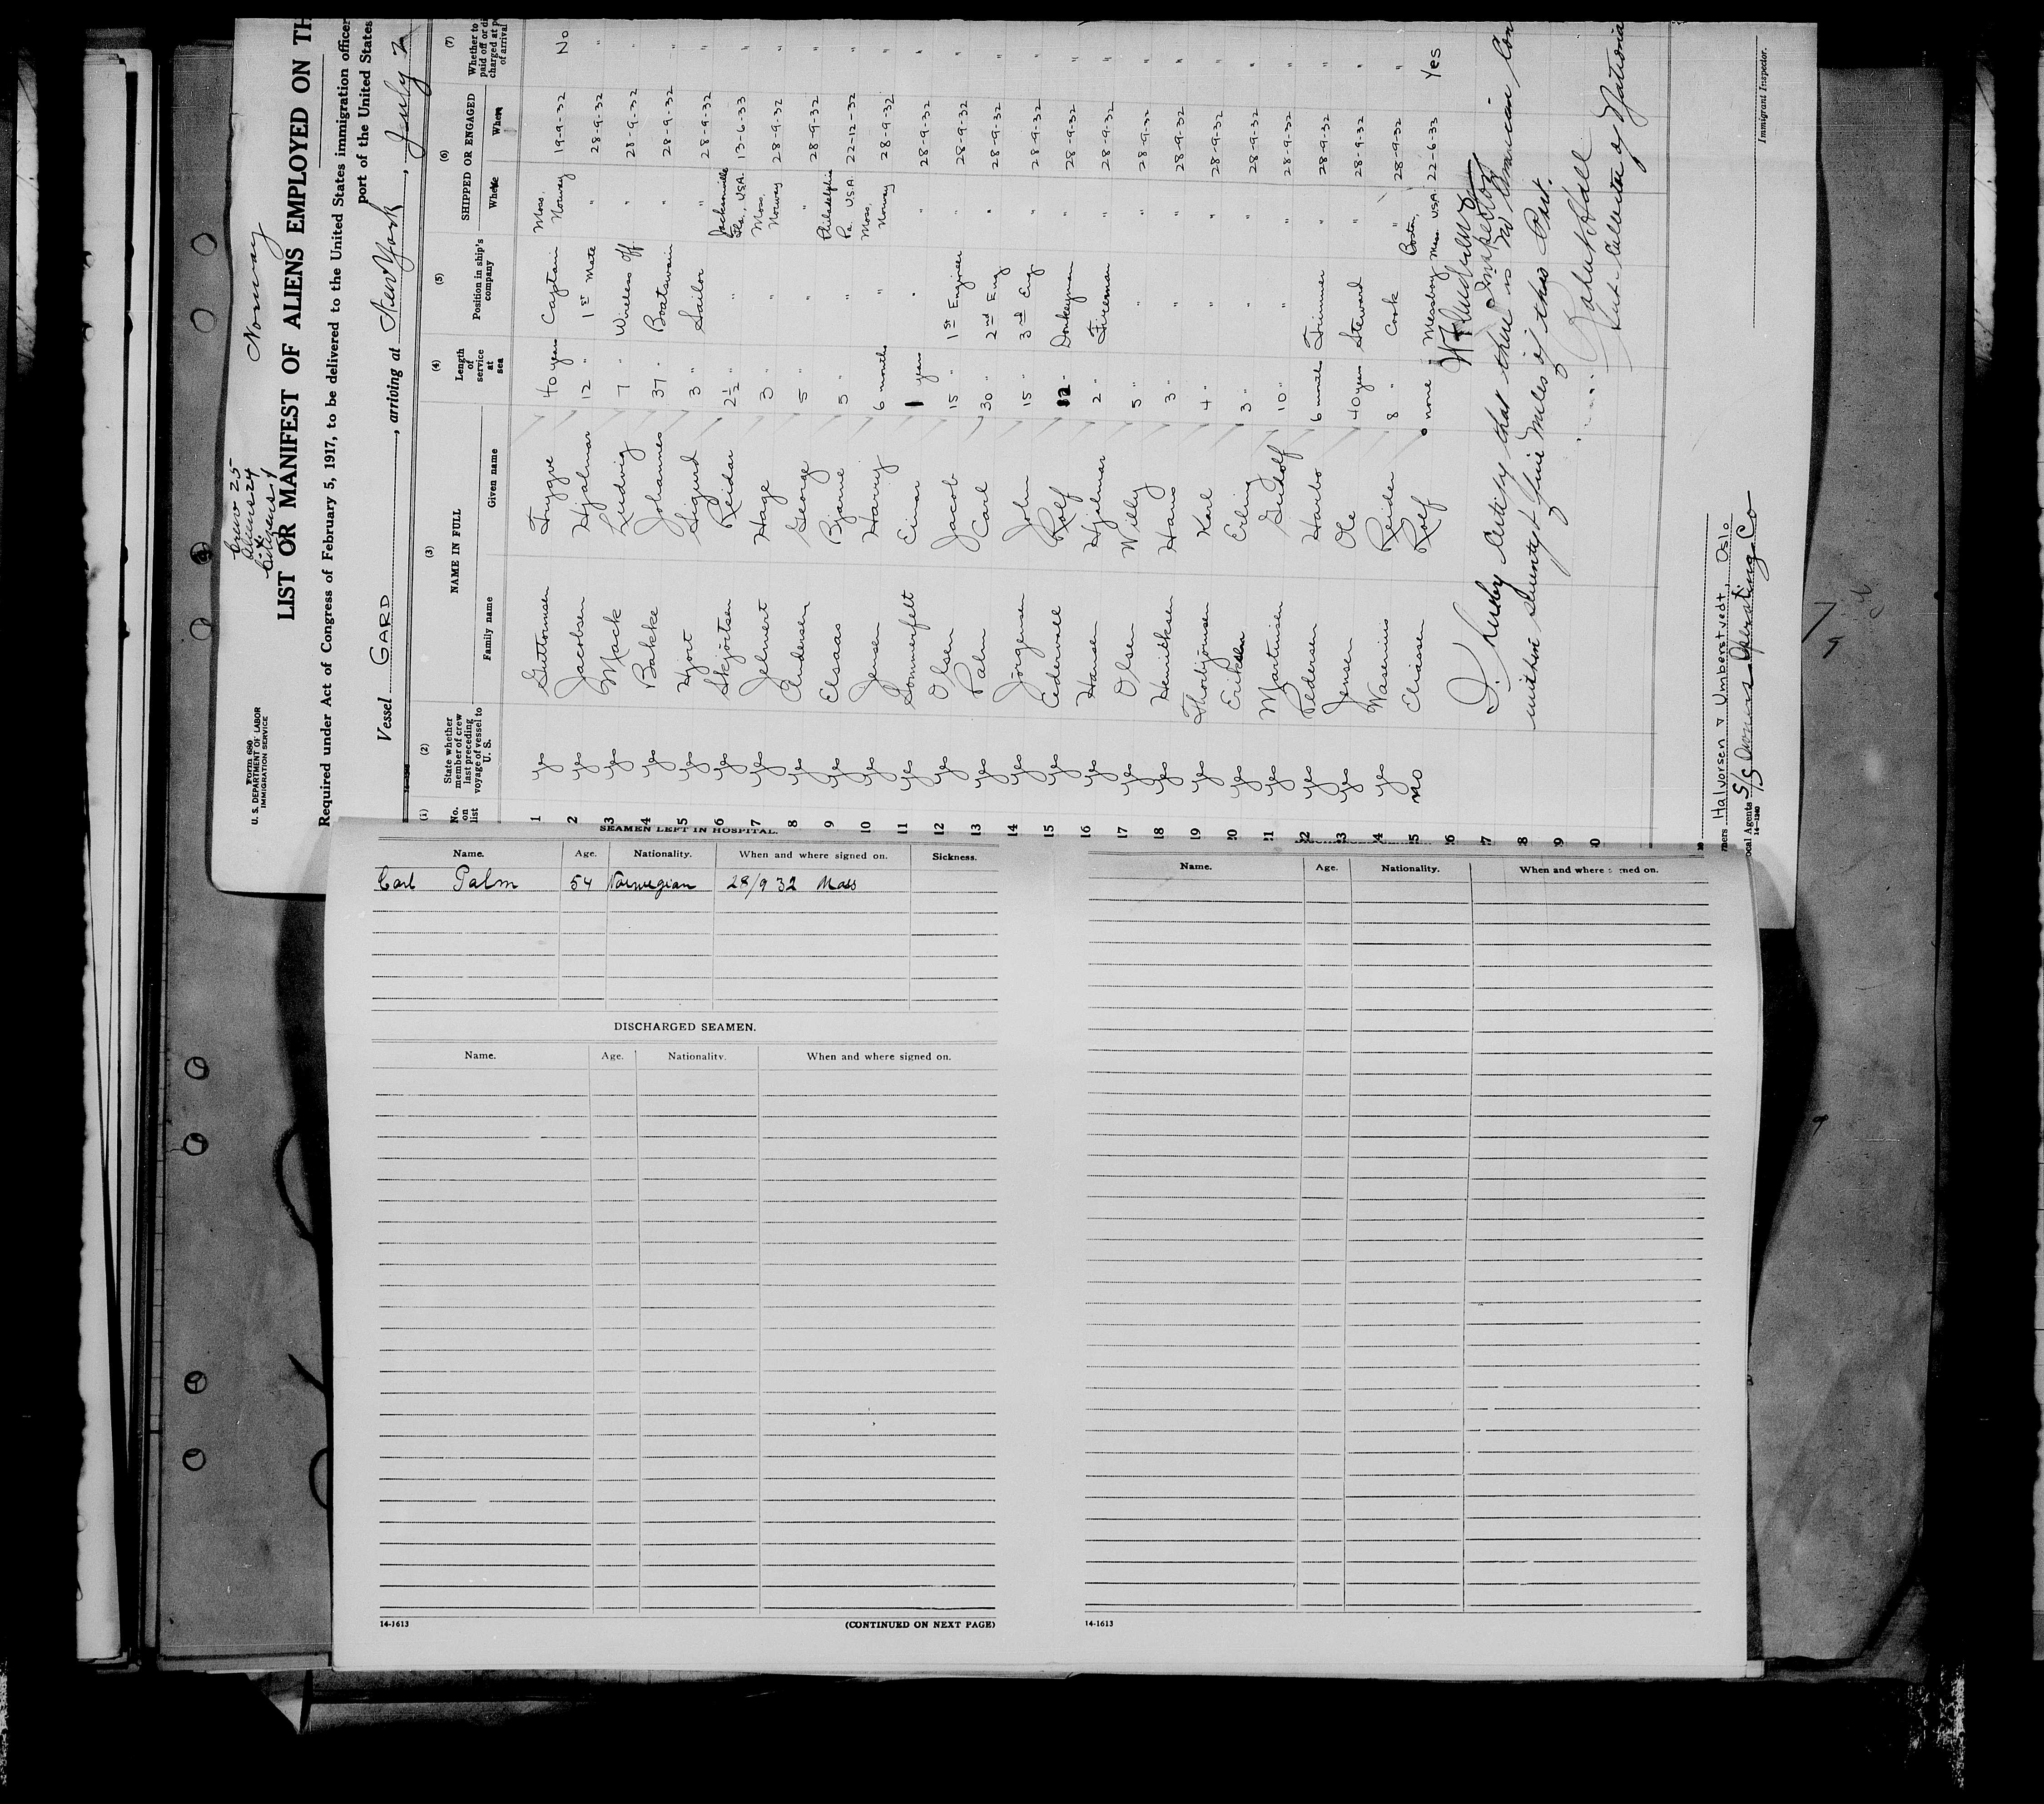 Form 680
U. S. DEPARTMENT OF LABOR
IMMIGRATION SERVICE
Crew 25
Aliens 24
Citizens 1
Norway
LIST OR MANIFEST OF ALIENS EMPLOYED ON TH
Required under Act of Congress of February 5, 1917, to be delivered to the United States immigration officer
port of the United States
Vessel GARD, arriving at New York, July 2
(1) (2) (3) (4) (5) (6) (7)
No. on list
State whether member of crew last preceding voyage of vessel to U. S.
NAME IN FULL
Family name Given name
Length of service at sea
Position in ship's company
SHIPPED OR ENGAGED
Where When
Whether to paid off or di charged at p of arrival
1 yes Guttormsen Trygve 40 years Captain Moss, Norway 19-9-32 No
2 yes Jacobsen Hjalmar 12 " 1st Mate " 28-9-32 "
3 yes Mack Ludvig 7 " Wireless Off " 28-9-32 "
4 yes Bakke Johannes 37 " Boatswain " 28-9-32 "
5 yes Hjort Sigurd 3 " Sailor " 28-9-32 "
6 yes Skjörtsen Reidar 2½ " " Jacksonville Fla., USA. 13-6-33 "
7 yes Jelnert Hage 3 " " Moss, Norway 28-9-32 "
8 yes Andersen George 5 " " " 28-9-32 "
9 yes Elsaas Bjarne 5 " " Philadelphia Pa. U.S.A. 22-12-32 "
10 yes Jensen Harry 6 months " Moss, Norway 28-9-32 "
11 yes Sommerfelt Einar 1 years " " 28-9-32 "
12 yes Olsen Jacob 15 " 1st Engineer " 28-9-32 "
13 yes Palm Carl 30 " 2nd Eng " 28-9-32 "
14 yes Jörgensen John 15 " 3rd Eng " 28-9-32 "
15 yes Cedervall Rolf 12 " Donkeyman " 28-9-32 "
16 yes Hansen Hjelmar 2 " Fireman " 28-9-32 "
17 yes Olsen Willy 5 " " " 28-9-32 "
18 yes Henriksen Hans 3 " " " 28-9-32 "
19 yes Thorbjörnsen Karl 4 " " " 28-9-32 "
20 yes Eriksen Erling 3 " " " 28-9-32 "
21 yes Martinsen Gudolf 10 " " " 28-9-32 "
22 yes Pedersen Harbo 6 months Trimmer " 28-9-32 "
23 yes Jensen Ole 40 years Steward " 28-9-32 "
24 yes Wasenius Reidar 8 " Cook " 28-9-32 "
25 no Eliassen Rolf none Messboy Boston, Mass. USA. 22-6-33 Yes
26
Inspector
27 I hereby certify that there is no Rumanian Con
28 within seventy five miles of this Port.
29
30
of Nationa
Halvorsen & Umberstvedt, Oslo
ocal Agents S/S Owners Operating Co
14-1240
Immigrant Inspector.
SEAMEN LEFT IN HOSPITAL.
Name. Age. Nationality. When and where signed on. Sickness.
Carl Palm 54 Norwegian 28/9 32 Moss
DISCHARGED SEAMEN.
Name. Age. Nationality. When and where signed on.
14-1613 (CONTINUED ON NEXT PAGE)
Name. Age. Nationality. When and where signed on.
14-1613